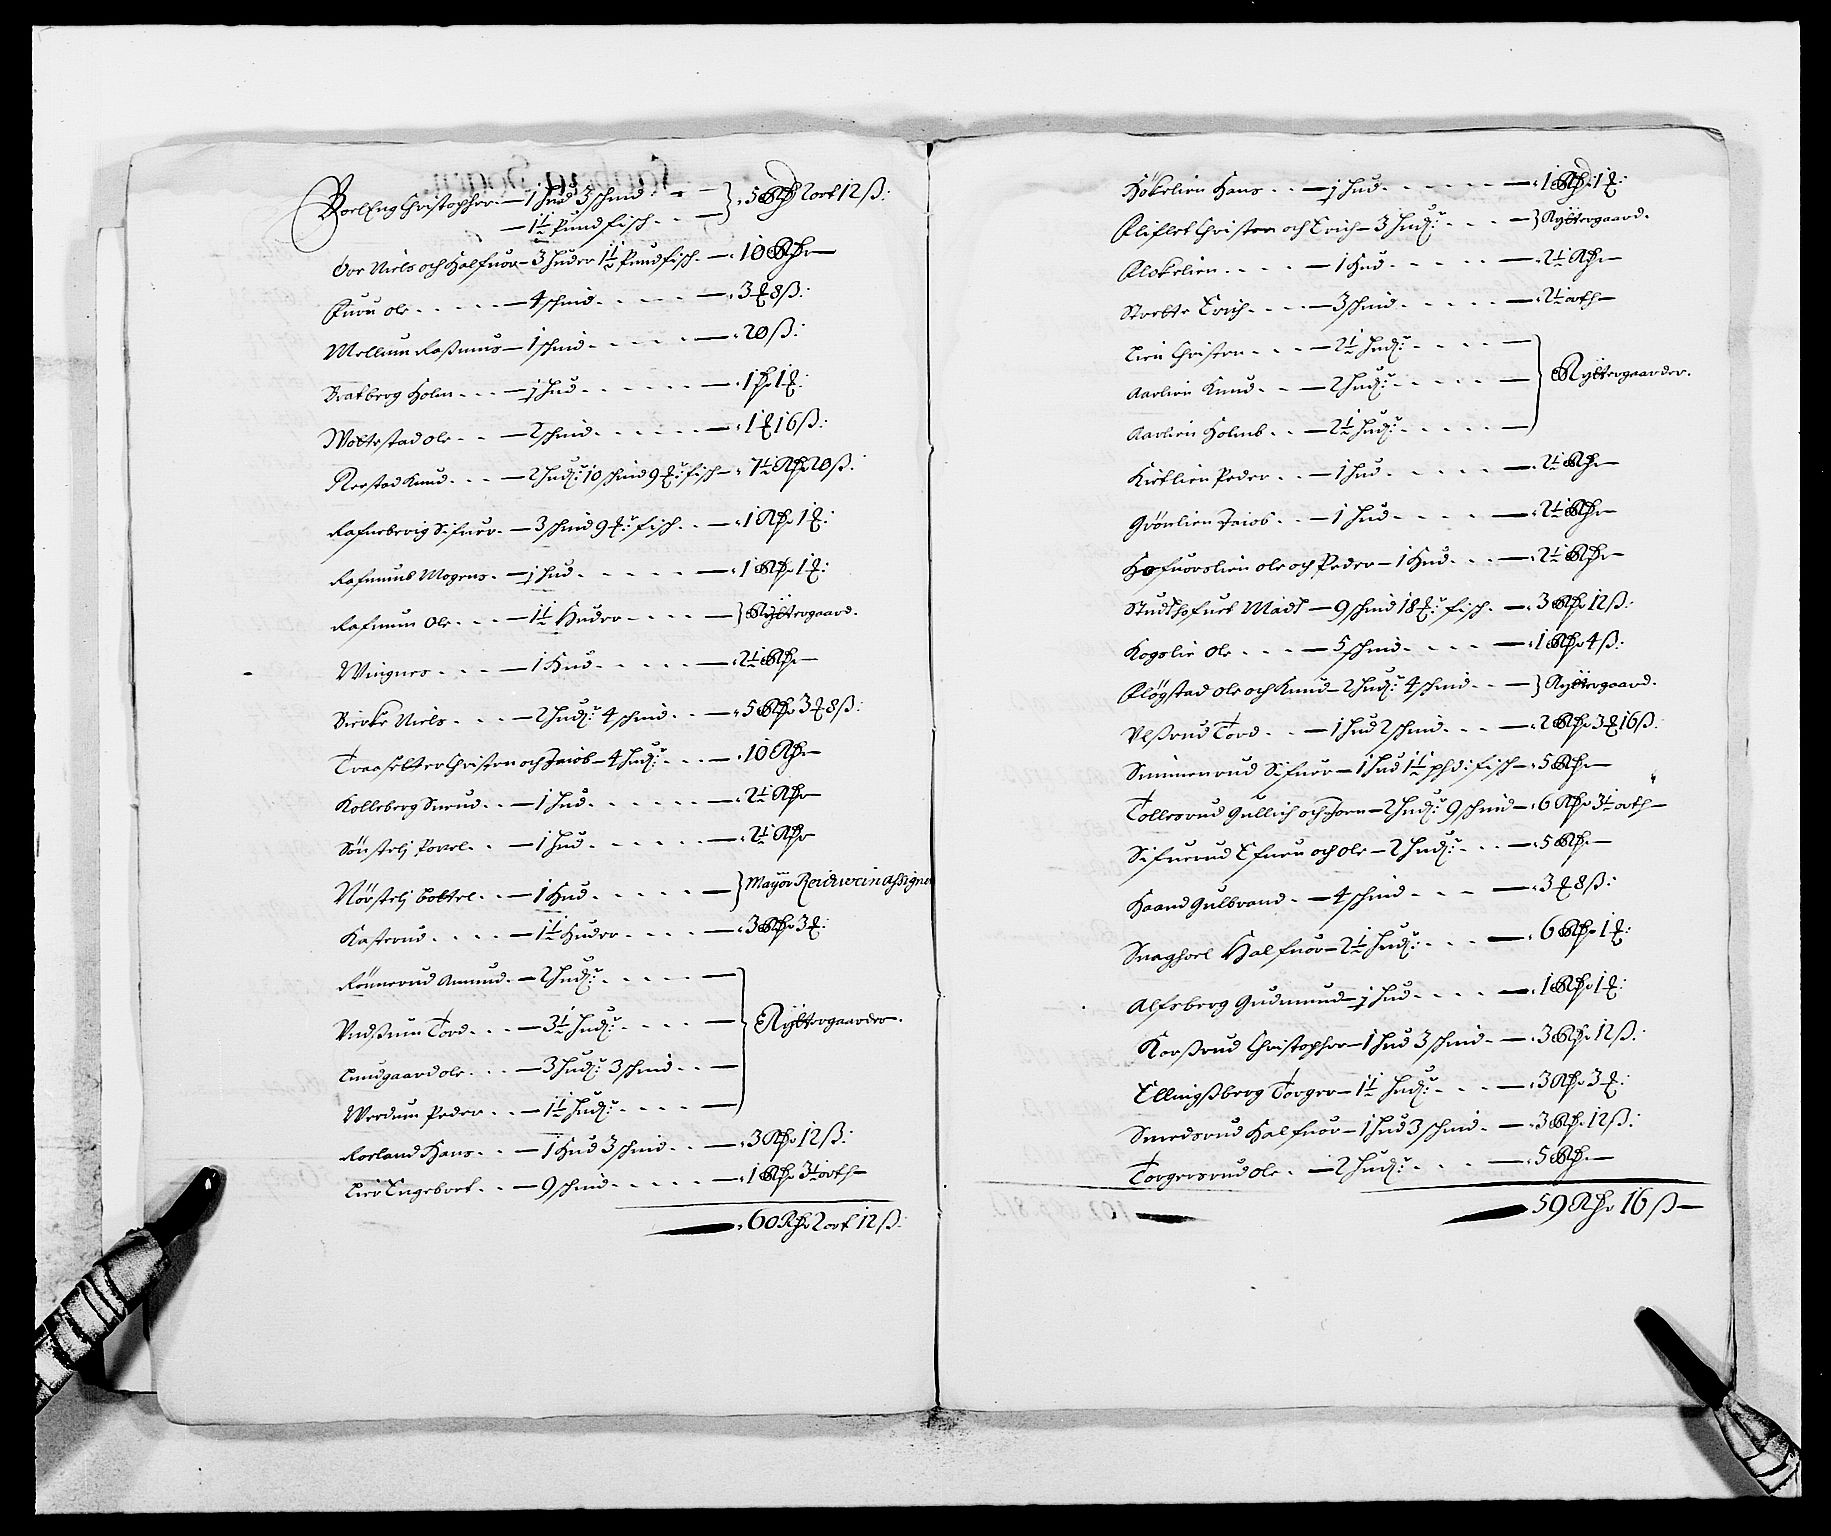 BoelEng Christopher — 1 Hud 3 schind — } 5 Rdr 2 ort 12 ß:
— 1½ Pund fisch
Ove Niels och Halfuor — 3 Huder 1½ Pund fisch — 10 Rdr —
Furu Ole — 4 schind — 3 ℔ 8 ß:
Mellum Rasmus — 1 schind — 20 ß:
Bratberg Holm — ½ Hud — 1 Rdr 1 ℔:
Woltestad Ole — 2 schind — 1 ℔ 16 ß:
Reestad Knud — 2 Hud: 10 schind 9 ℔: fisch — 7½ Rdr 20 ß:
Rafneberig Sifuer — 3 schind 9 ℔: fisch — 1 Rdr 1 ℔:
Rafnuns Mogens — ½ Hud — 1 Rdr 1 ℔:
Rafnun Ole — 1½ Huder — } Rÿttergaard.
Wingnes — 1 Hud — 2½ Rdr —
Bierke Niels — 2 Hud: 4 schind — 5 Rdr 3 ℔ 8 ß:
Traasetter Christen och Jacob — 4 Hud: — 10 Rdr —
Kolleberg Snerud — 1 Hud — 2½ Rdr
Sönstelj Povel — 1 Hud — 2½ Rdr
Nörstelj — 1 Hud — } Mayor Reichwein Assigner
Kasterud — 1½ Huder — 3 Rdr 3 ℔:
Rönnerud Amund — 2 Hud:
Vndßum Tord — 3½ Hud: — } Rÿttergaarder.
Lundgaard Ole — 3 Hud: 3 schind
Werdum Peder — 1½ Hud:
Roeland Hans — 1 Hud 3 schind — 3 Rdr 12 ß:
Lier Engebret — 9 schind — 1 Rdr 3½ orth —
60 Rdr 2 ort 12 ß:
Hökelien Hans — ½ Hud — 1 Rdr 1 ℔:
Flislet Christen och Erich — 3 Hud: — } Rÿttergaard.
Flokelien — 1 Hud — 2½ Rdr —
Stertte Erich — 3 schind — 2½ orth —
Lien Christen — 2½ Hud:
Aaslien Knud — 2 Hud: — } Rÿttergaarder.
Aaslien — 2½ Hud:
Kirklien Peder — 1 Hud — 2½ Rdr —
Grönlien Jacob — 1 Hud — 2½ Rdr —
Hofuorslien Ole och Peder — 1 Hud — 2½ Rdr —
Studshofuet Madt — 9 schind 18 ℔: fisch — 3 Rdr 12 ß:
Kogslie Ole — 5 schind — 1 Rdr 4 ß:
Flögstad Ole och Knud — 2 Hud: 4 schind — } Rÿttergaard.
Vlßrud Tord — 1 Hud 2 schind — 2 Rdr 3 ℔ 16 ß:
Simmenrud Sifuer — 1 Hud 1½ pd: fisch — 5 Rdr —
Tollesrud Gullich och Joen — 2 Hud: 9 schind — 6 Rdr 3½ orth —
Sifuerud Efuen och Ole — 2 Hud: — 5 Rdr —
Haand Gulbrand — 4 schind — 3 ℔ 8 ß:
Snaghoel Halfuor — 2½ Hud: — 6 Rdr 1 ℔:
Alfsberg Gudmund — ½ Hud — 1 Rdr 1 ℔:
Korßrud Christopher — 1 Hud 3 schind — 3 Rdr 12 ß:
Ellingßberg Torger — 1½ Hud: — 3 Rdr 3 ℔:
Smedsrud Halfuor — 1 Hud 3 schind — 3 Rdr 12 ß:
Torgersrud Ole — 2 Hud: — 5 Rdr —
59 Rdr 16 ß —